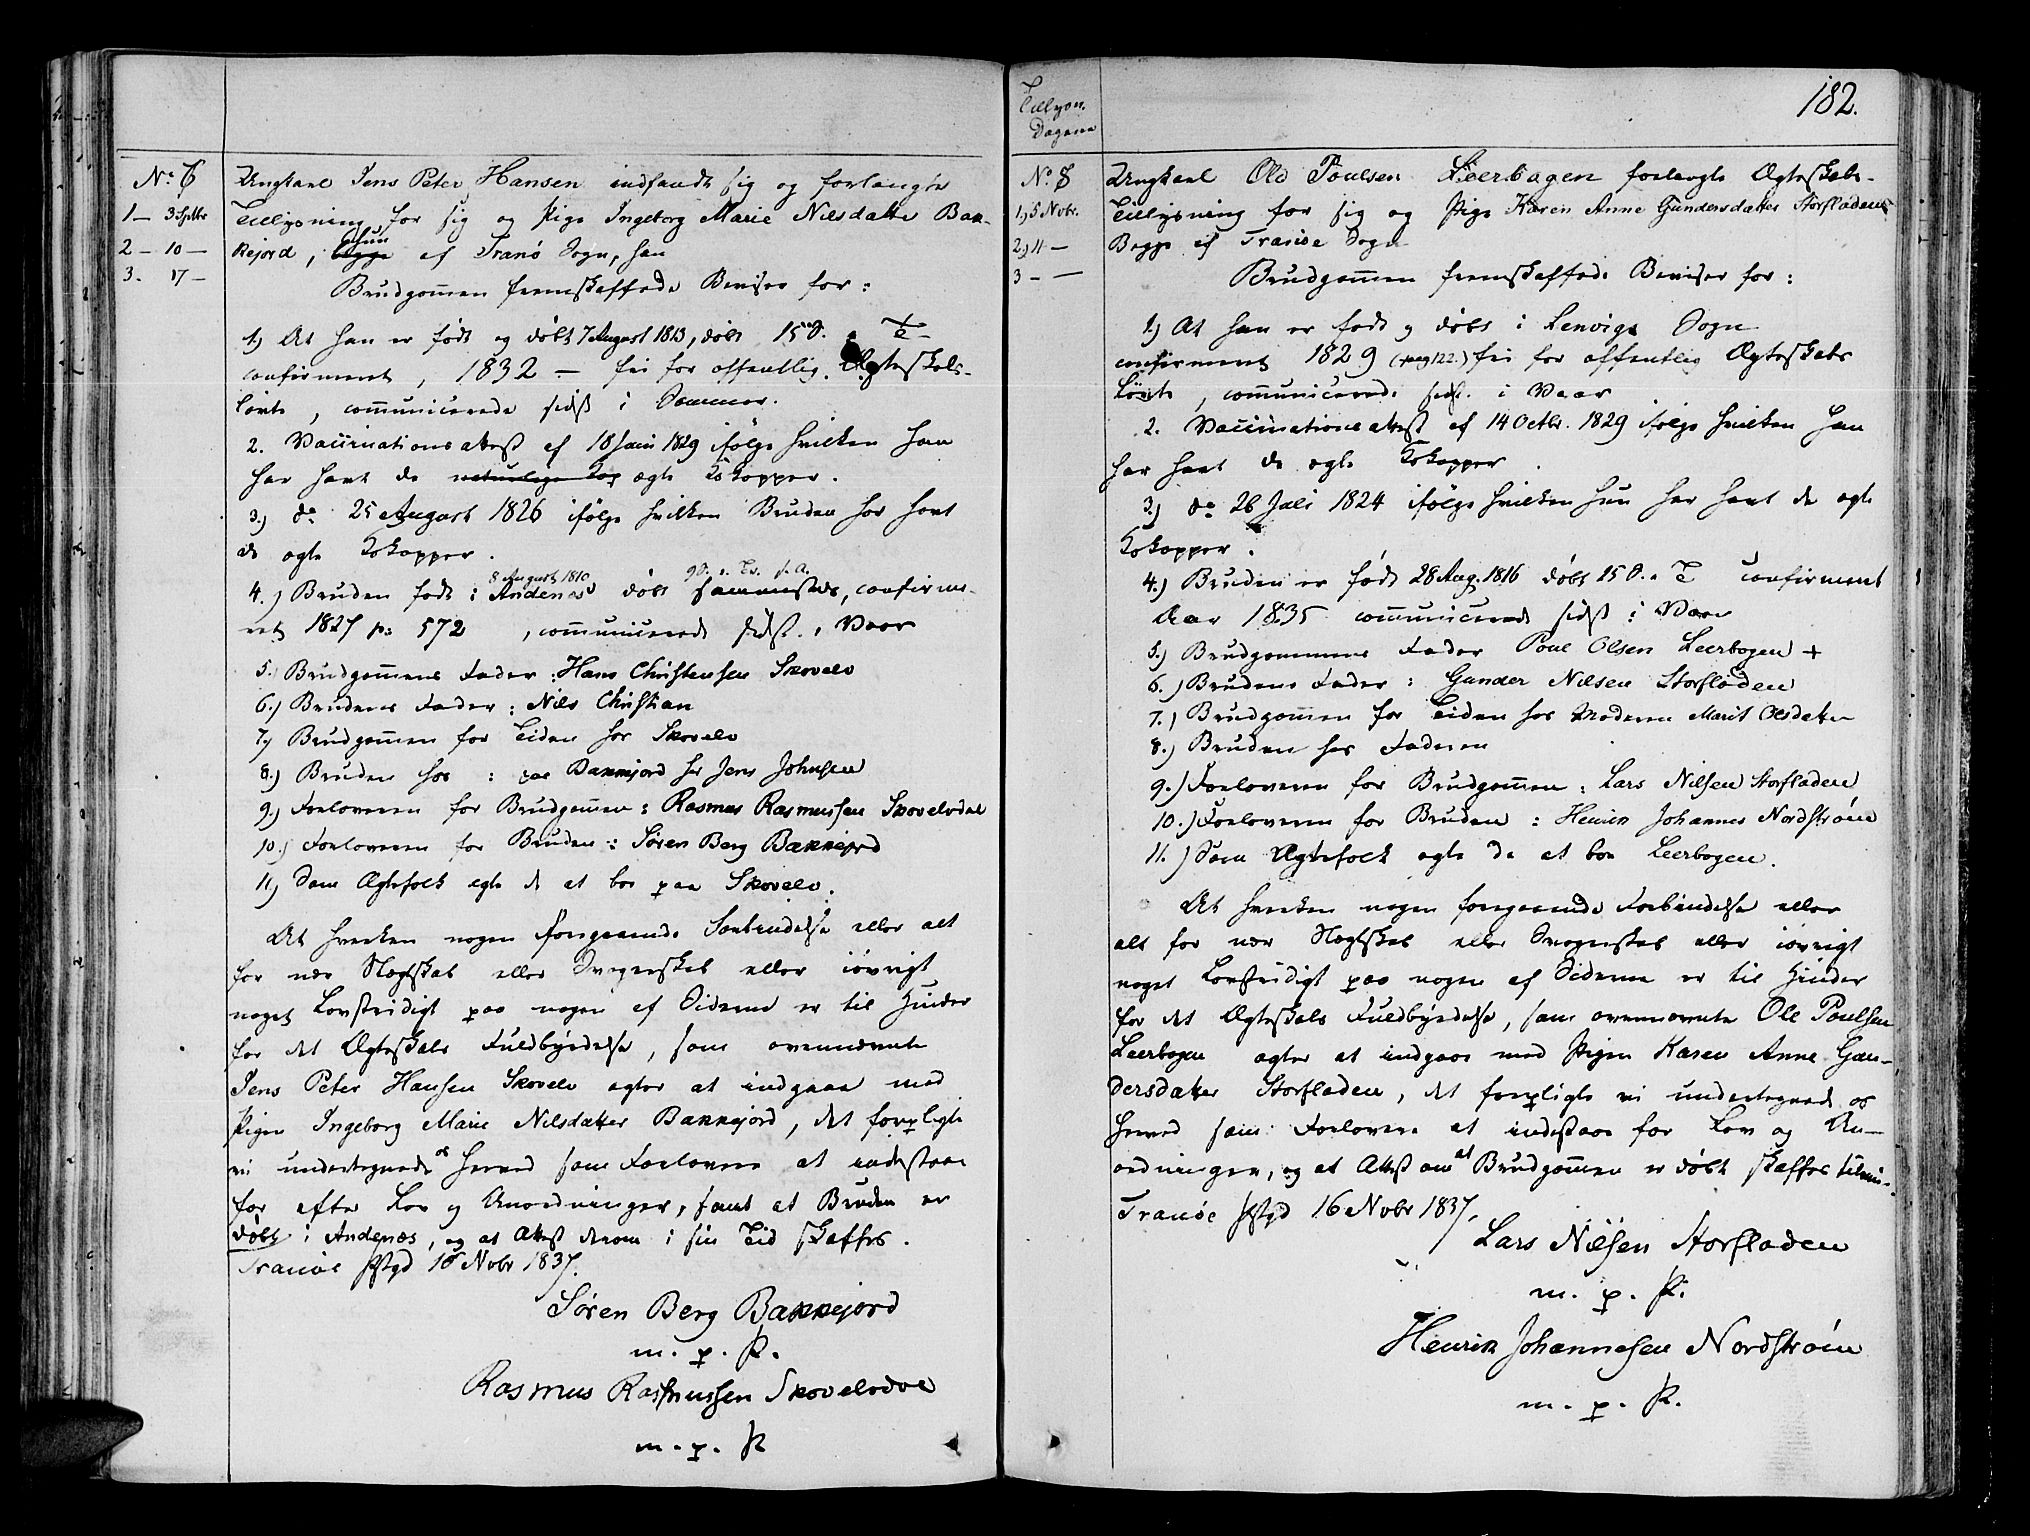 No 6
1 – 3 Septbr
2 – 10 –
3. 17 –
Ungkarl Jens Peter Hansen indfandt sig og forlangte
Tillysning for sig og Pige Ingeborg Marie Nilsdatter Bak-
kejord, begge hun af Tranö Sogn, han
Brudgommen fremskaffede Beviser for:
1) At han er født og døbt 7 August 1813, døbt 15 S. e. T.
confirmeret, 1832 – fri for offentlig Ægteskabs-
løvte, communicerede sidst i Sommer.
2. Vaccinationsattest af 18 Juni 1829 ifølge hvilken han
har havt de naturlige Kop ægte Kokopper.
3) do 25 August 1826 ifølge hvilken Bruden har havt
de ægte Kokopper.
8 August 1810
4.) Bruden født i Andenæs døbt sammesteds, confirme-
ret 1827 p: 572, communicerede sidst i Vaar
5. Brudgommens Fader: Hans Christensen Skovelv
6.) Brudens Fader: Niels Christian
7.) Brudgommen for Tiden hos Skovelv
8.) Bruden hos : paa Bakkejord hos Jens Johnsen
9.) Forloveren for Brudgommen: Rasmus Rasmussen Skovelvdal
10.) Forloveren for Bruden: Søren Berg Bakkejord
11) Som Ægtefolk agte de at boe paa Skovelv.
At hverken nogen foregaaende Forbindelse eller alt
for nær Slægtskab eller Svogerskab eller iøvrigt
noget Lovstridigt paa nogen af Siderne er til Hinder
for det Ægteskabs Fuldbyrdelse, som ovennævnte
Jens Peter Hansen Skovelv agter at indgaae med
Pigen Ingeborg Marie Nilsdatter Bakkejord, det forpligte
vi undertegnede os herved som Forlovere at indestaae
for efter Lov og Anordninger, samt at Bruden er
døbt i Andenæs, og at Attest derom i sin Tid skaffes.
Tranøe Pstgd 16 Novbr 1837.
Søren Berg Bakkejord
m. p. P.
Rasmus Rasmussen Skovelvdal
m. p. P
Tillysn.
Dagene
182.
No. 8
1) 5 Novbr.
2) 11 –
3 – –
Ungkarl Ole Poulsen Leerbogen forlangte Ægteskabs-
Tillysning for sig og Pige Karen Anne Gundersdatter Storfladen
Begge af Tranøe Sogn
Brudgommen fremskaffede Beviser for:
1.) At han er født og døbt i Lenvigs Sogn
confirmeret 1829 (pag 122.) fri for offentlig Ægteskabs
Løvte, communicerede sidst i Vaar
2. Vaccinationsattest af 14 Octbr. 1829 ifølge hvilken han
har havt de ægte Kokopper.
3) do 26 Juli 1824 ifølge hvilken hun har havt de ægte
Kokopper.
4.) Bruden er født 28 Aug. 1816 døbt 15 S. e. T confirmeret
Aar 1835 communicerede sidst i Vaar
5.) Brudgommens Fader Poul Olsen Leerbogen +
6.) Brudens Fader: Gunder Nilsen Storfladen
7.) Brudgommen for Tiden hos Moderen Marit Olsdatter
8.) Bruden hos Faderen
9.) Forloveren for Brudgommen: Lars Nilsen Storfladen
10.) Forloveren for Bruden: Henrik Johannes Nordstrøm
11.) Som Ægtefolk agte de at boe Leerbogen.
At hverken nogen foregaaende Forbindelse eller
alt for nær Slægtskab eller Svogerskab eller iøvrigt
noget Lovstridigt paa nogen af Siderne er til Hinder
for det Ægteskabs Fuldbyrdelse, som ovennævnte Ole Poulsen
Leerbogen agter at indgaae med Pigen Karen Anne Gun-
dersdatter Storfladen, det forpligte vi undertegnede os
herved som Forlovere at indestaae for Lov og An-
ordninger, og at Attest om at Brudgommen er døbt skaffes
Tranøe Pstgd 16 Novbr 1837.
Lars Nilsen Storfladen
m. p. P.
Henrik Johannesen Nordstrøm
m. p. P.